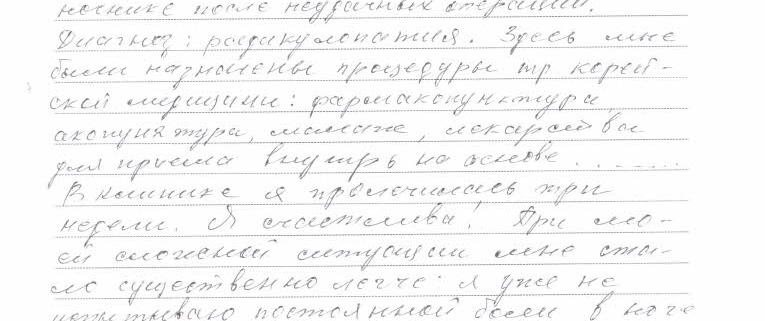 ночнике после неудачных операций.
Диагноз: радикулопатия. Здесь мне
были назначены процедуры тр корей-
ской медицины: фармакопунктура,
акопунктура, массаж, лекарства
для приема внутрь на основе..........
В клинике я пролечилась три
недели. Я счастлива! При мо-
ей сложной ситуации мне ста-
ло существенно легче: я уже не
испытываю постоянной боли в ноге